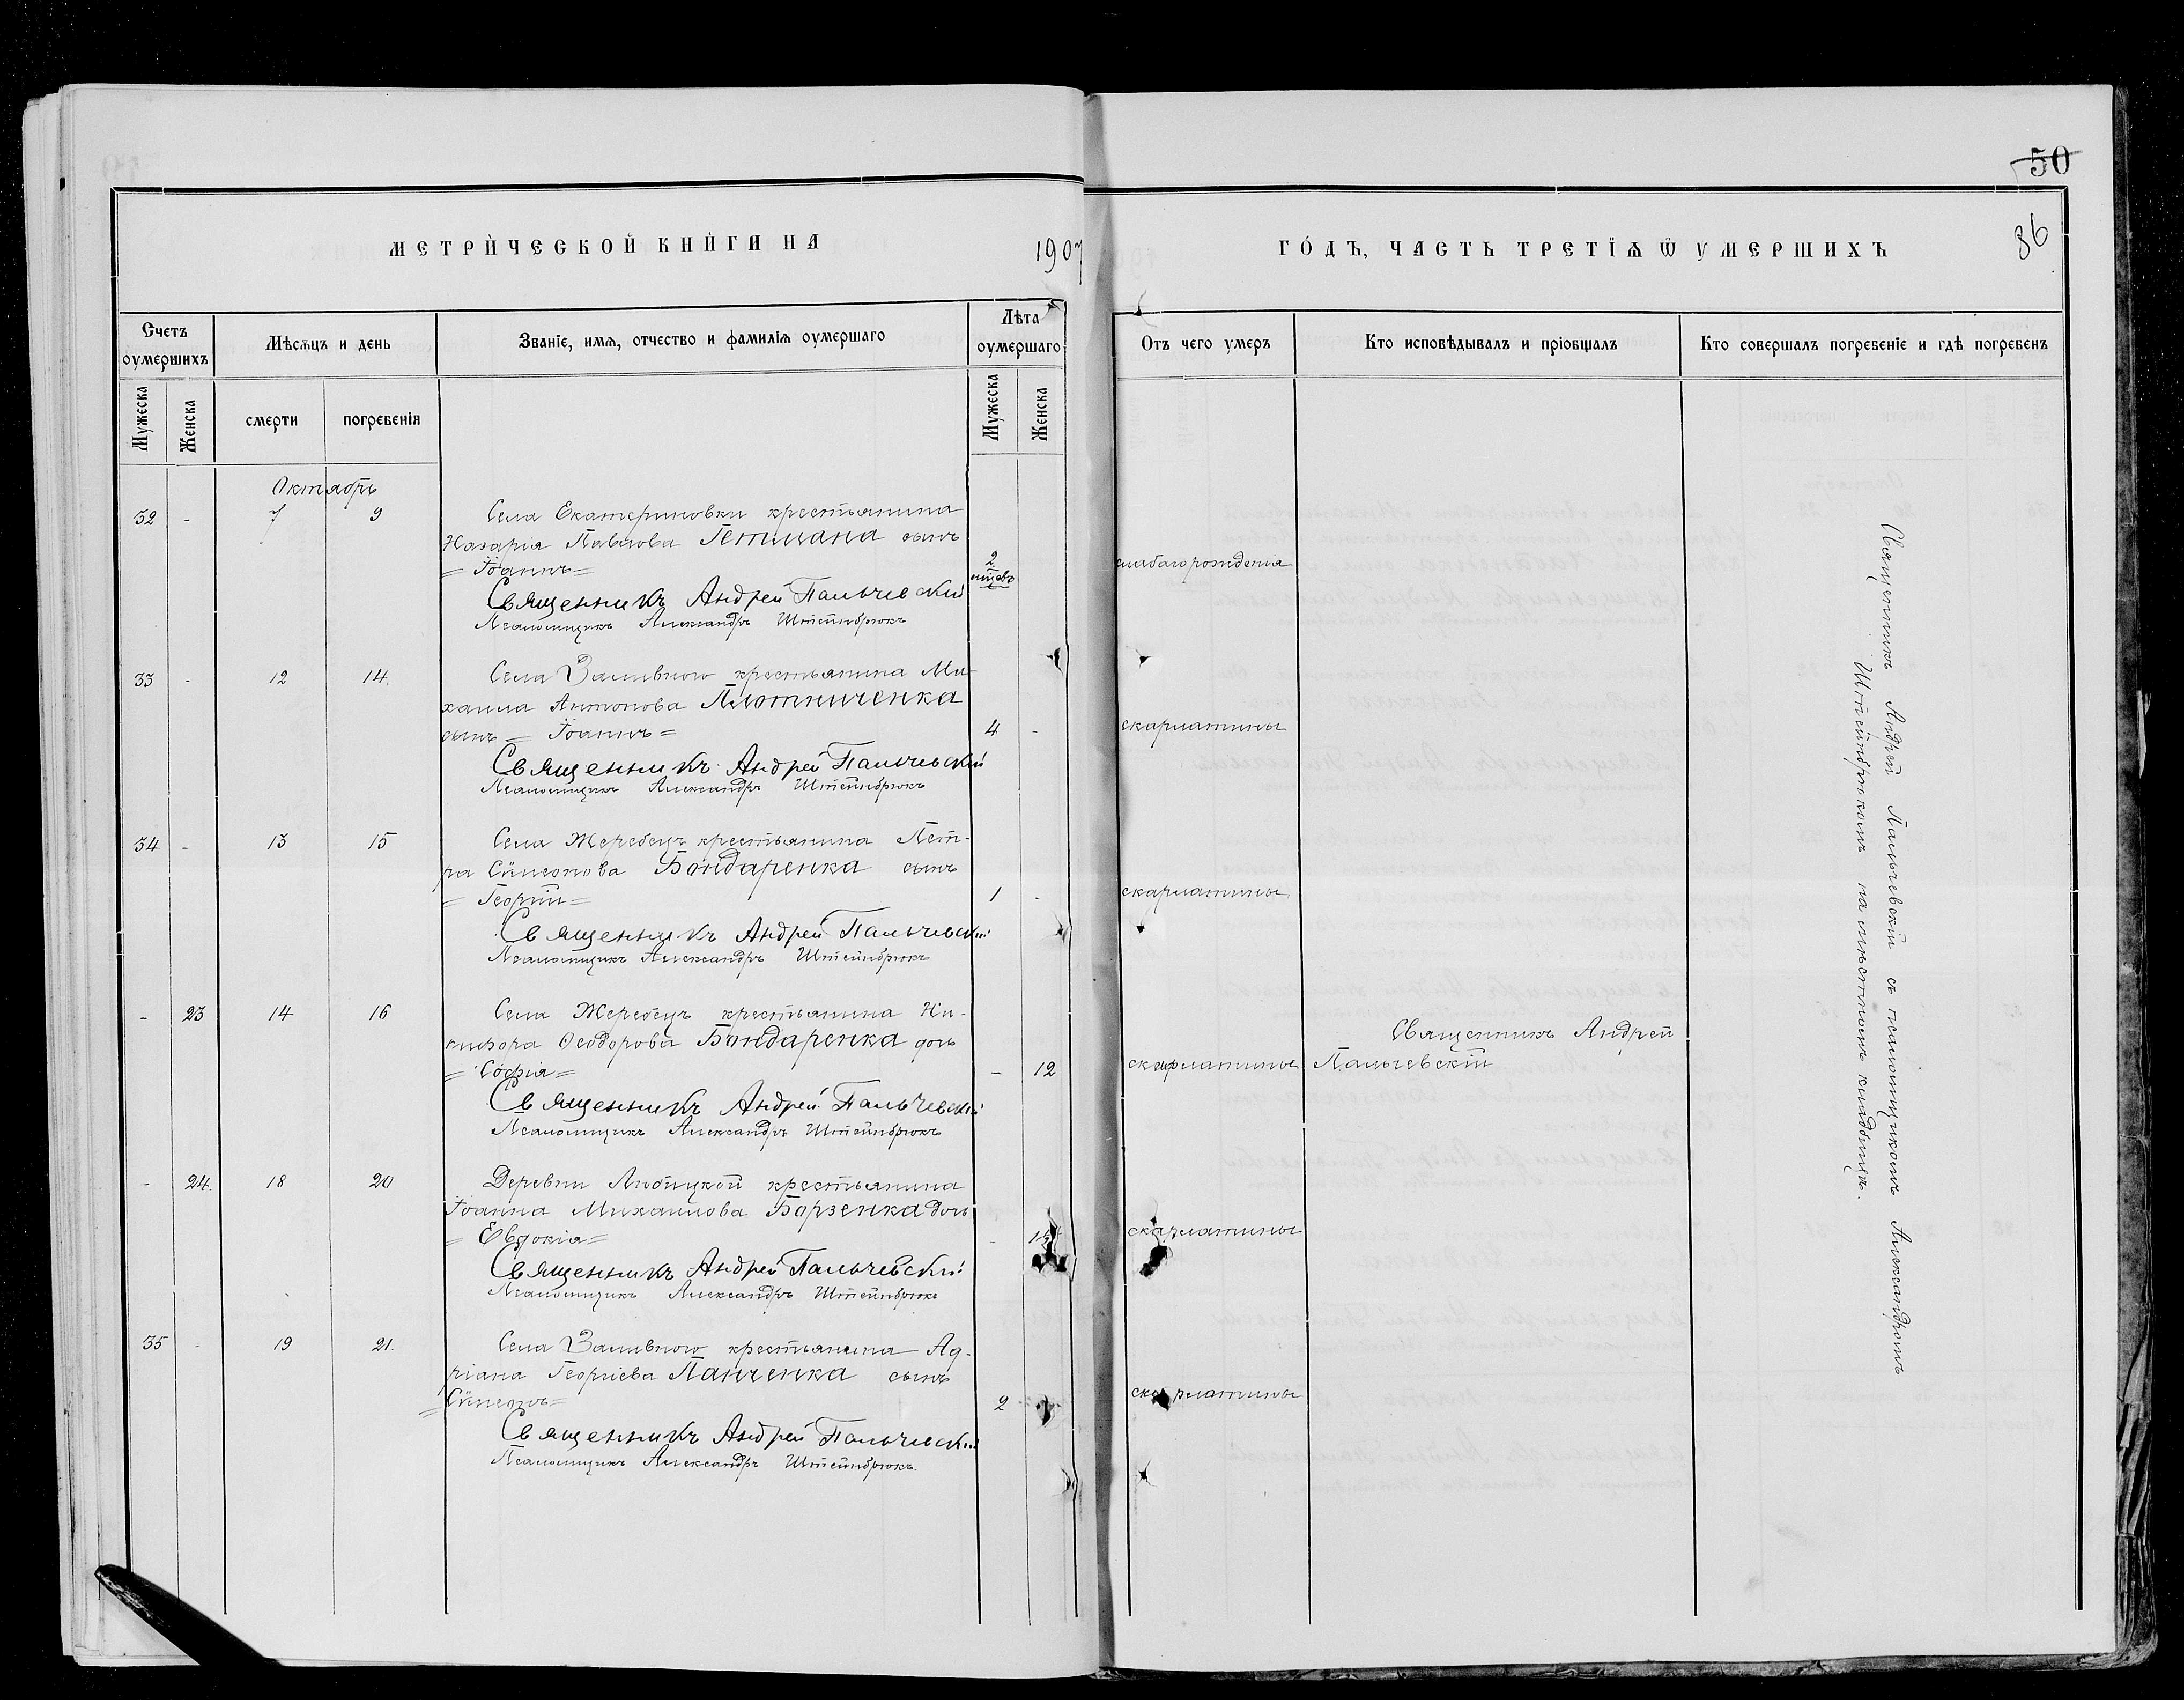 50
86
МЕТРИ́ЧЕСКОЙ КНИ́ГИ НА 1907 ГО́ДЪ, ЧАСТЬ ТРЕТІѦ Ѿ УМЕРШИХЪ
Счетъ оумершихъ
Мѣсѧцъ и день
Званіе, имѧ, отчество и фамиліѧ оумершаго
Лѣта оумершаго
Отъ чего умеръ
Кто исповѣдывалъ и пріобщалъ
Кто совершалъ погребеніе и гдѣ погребенъ
Мужеска
Женска
смерти
погребенія
Мужеска
Женска
Октябрь
32 - 7 9 Села Екатериновки крестьянина
Назарія Павлова Гетмана сынъ
= Іоаннъ = 2 мѣсяц.
слабаго рожденія
Священникъ Андрей Пальчевскій
Псаломщикъ Александръ Штейнбрюкъ
33 - 12 14. Села Заливного крестьянина Ми-
хаила Антонова Плотниченка
сынъ = Іоаннъ = 4 - скарлатины
Священникъ Андрей Пальчевскій
Псаломщикъ Александръ Штейнбрюкъ
34 - 13 15 Села Жеребецъ крестьянина Пет-
ра Сѵмеонова Бондаренка сынъ
= Георгій = 1 - скарлатины
Священникъ Андрей Пальчевскій
Псаломщикъ Александръ Штейнбрюкъ
- 23 14 16 Села Жеребецъ крестьянина Ни-
кифора Ѳеодорова Бондаренка дочь
= Софія = - 12 скарлатины
Священникъ Андрей
Пальчевскій
Священникъ Андрей Пальчевскій
Псаломщикъ Александръ Штейнбрюкъ
- 24. 18 20 Деревни Любицкой крестьянина
Іоанна Михаилова Борзенка дочь
= Евдокія = - скарлатины
Священникъ Андрей Пальчевскій
Псаломщикъ Александръ Штейнбрюкъ
35 - 19 21. Села Заливного крестьянина Ад-
ріана Георгіева Панченка сынъ
= Сѵмеонъ = 2 скарлатины
Священникъ Андрей Пальчевскій
Псаломщикъ Александръ Штейнбрюкъ.
Священникъ Андрей Пальчевскій съ псаломщикомъ Александромъ
Штейнбрюкомъ на мѣстномъ кладбищѣ.